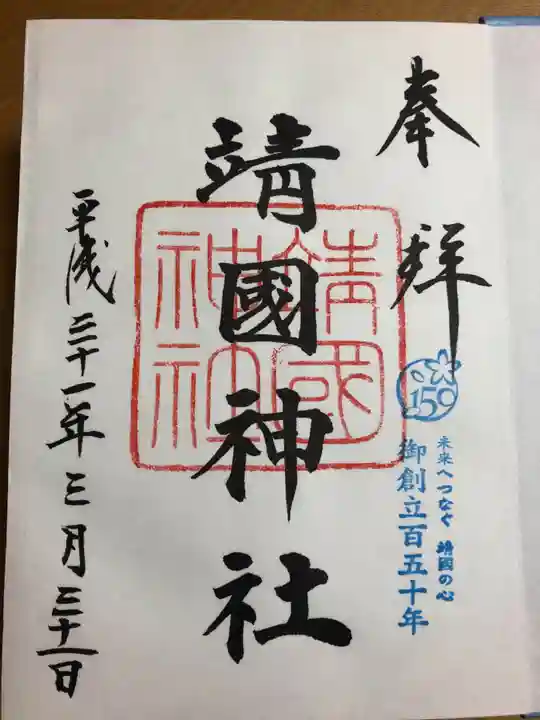 奉拝
150
未来へつなぐ 靖国の心
御創立百五十年
靖國神社
靖國
神社
平成三十一年三月三十一日